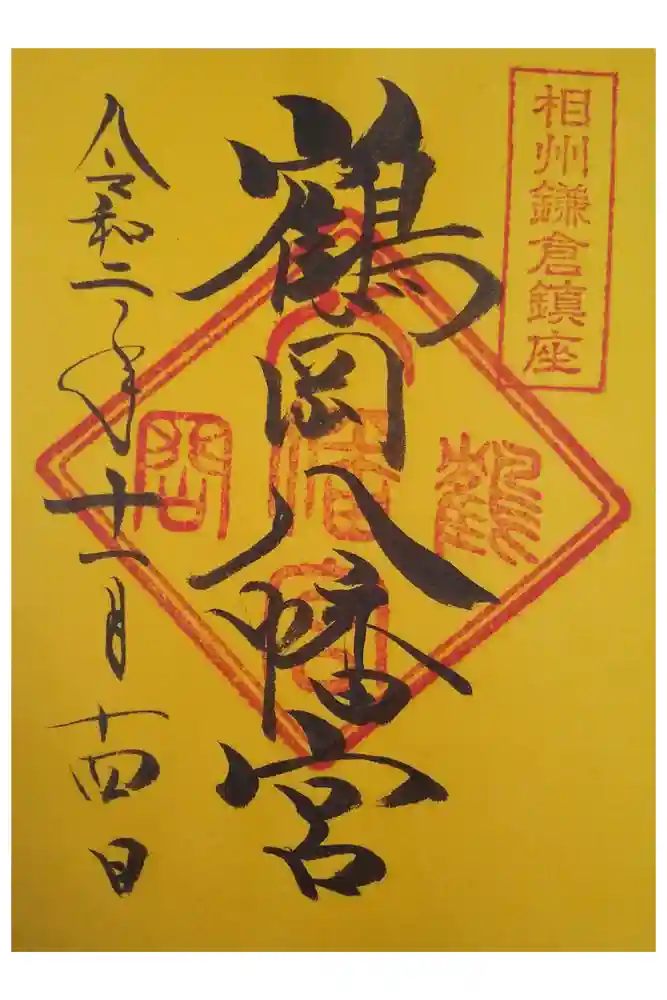 相州鎌倉鎮座
鶴岡八幡宮
令和二年十一月十四日
鶴
八
幡
宮
岡